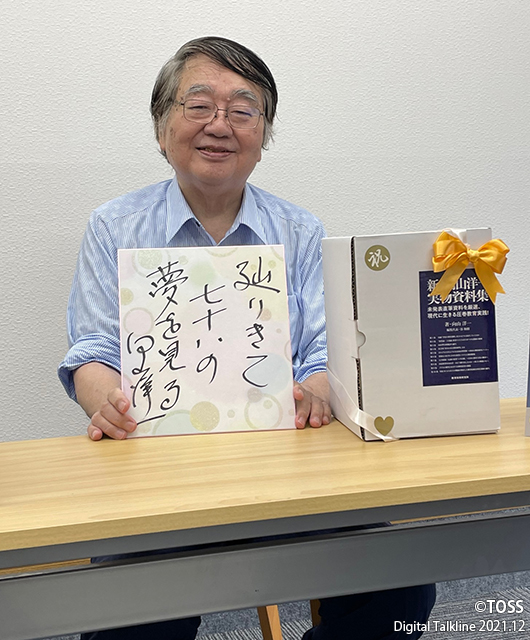 辿りきて
七十八の
夢を見る
向山洋一
祝
新
山洋一
実物資料集
未発表直筆資料を厳選。
現代に生きる圧巻教育実践!
著・向山 洋一
©TOSS
Digital Talkline 2021.12